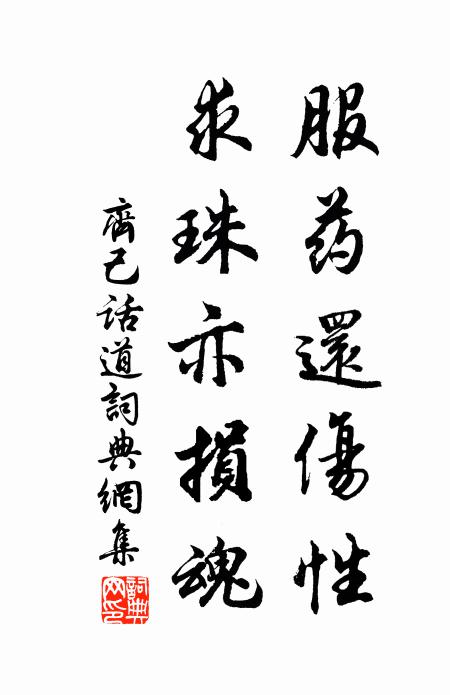 服药還傷性
求珠亦損魂
齊己話道詞典網集
詞典网印